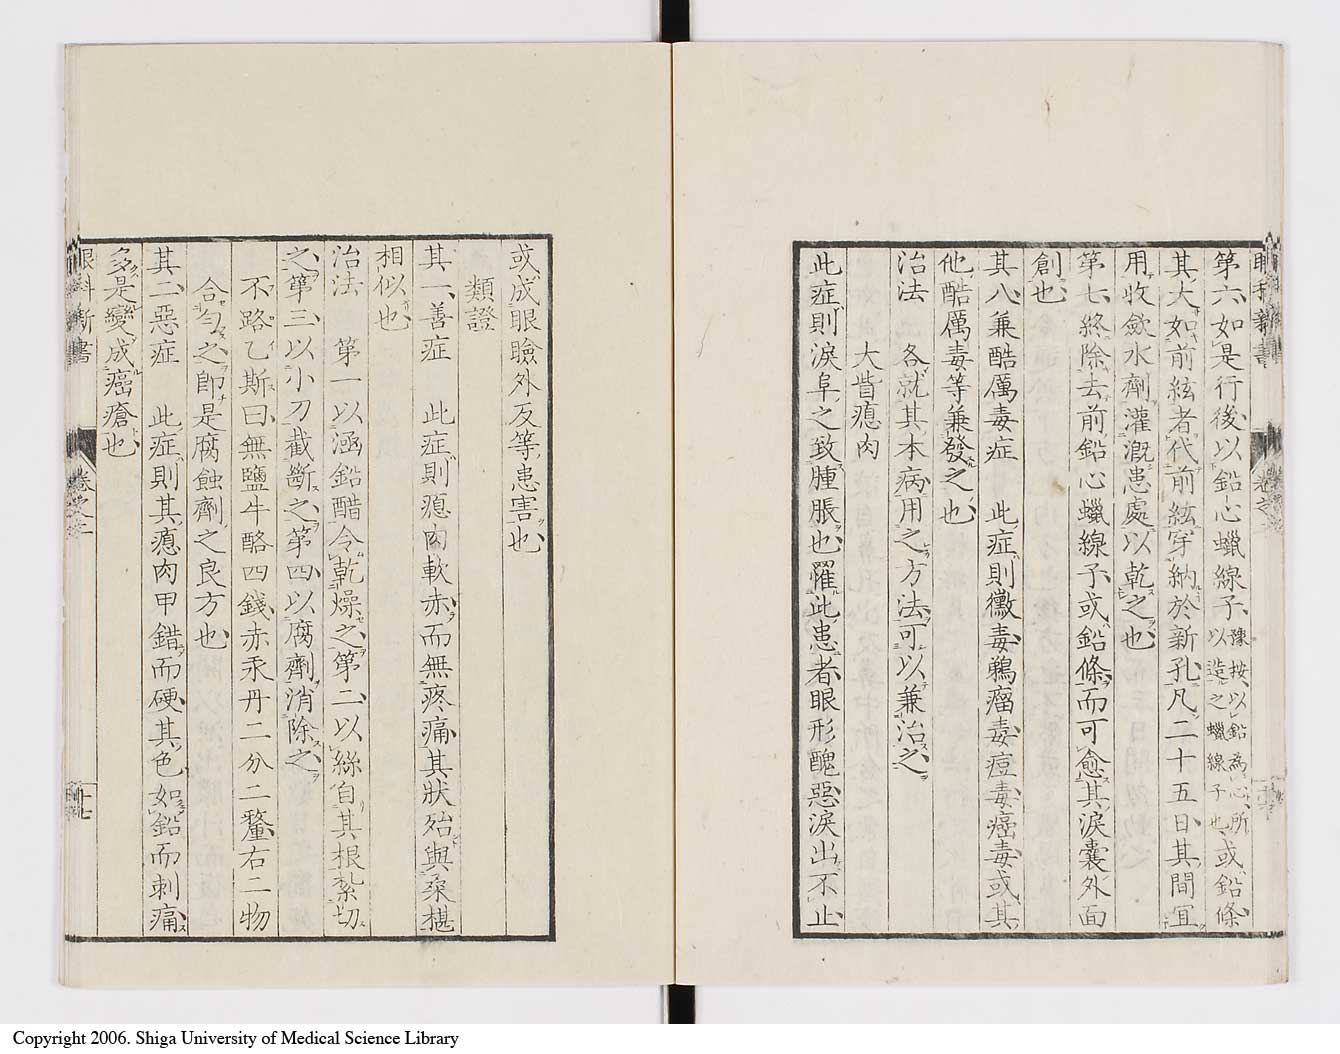 眼科新書 卷之二
第六、如是行後、以鉛心蠟線子、豫按、以鉛為心、所以造之蠟線子也、或鉛條、
其大如前絃者、代前絃穿納於新孔、凡二十五日、其間宜
用收歛水劑灌溉患處、以乾之也、
第七、終除去前鉛心蠟線子、或鉛條、而可愈其淚囊外面
創也、
其八、兼酷厲毒症 此症、則黴毒、鶤瘤毒、痘毒、癌毒、或其
他酷厲毒等兼發之也、
治法 各就其本病用之方法、可以兼治之、
大眥瘜肉
此症、則淚阜之致腫脹也、罹此患者、眼形醜惡、淚出不止、
或成眼瞼外反等患害也、
類證
其一、善症 此症、則瘜肉軟赤、而無疼痛、其狀殆與桑椹
相似也、
治法 第一、以涵鉛醋令乾燥之、第二、以絲自其根紮切
之、第三、以小刀截斷之、第四、以腐劑消除之、
不路乙斯曰、無鹽牛酪四錢、赤汞丹二分二釐、右二物
合之、卽是腐蝕劑之良方也、
其二、惡症 此症、則其瘜肉甲錯而硬、其色如鉛而刺痛、
多是變成癌瘡也、
眼科新書 卷之二 十七
Copyright 2006. Shiga University of Medical Science Library